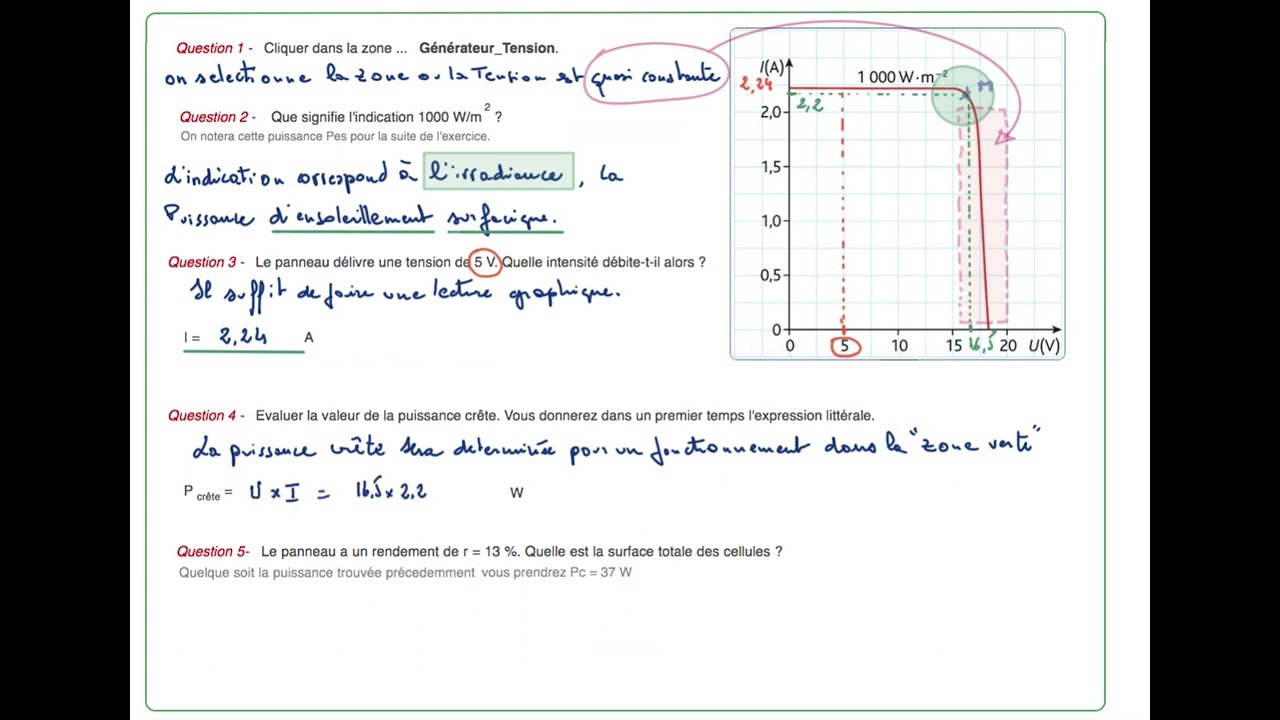 Question 1 - Cliquer dans la zone ... Générateur_Tension.
on selectionne la zone ou la Tension est quasi constante
Question 2 - Que signifie l'indication 1000 W/m² ?
On notera cette puissance Pes pour la suite de l'exercice.
L'indication correspond à l'irradiance, la
Puissance d'ensoleillement surfacique.
Question 3 - Le panneau délivre une tension de 5 V. Quelle intensité débite-t-il alors ?
Il suffit de faire une lecture graphique.
I = 2,24 A
I(A)
1 000 W·m⁻²
M
2,24
2,2
2,0
1,5
1,0
0,5
0
0 5 10 15 16,5 20 U(V)
Question 4 - Evaluer la valeur de la puissance crête. Vous donnerez dans un premier temps l'expression littérale.
La puissance crête sera determinée pour un fonctionnement dans la "zone verte"
P crête = U x I = 16,5 x 2,2 W
Question 5- Le panneau a un rendement de r = 13 %. Quelle est la surface totale des cellules ?
Quelque soit la puissance trouvée précedemment vous prendrez Pc = 37 W